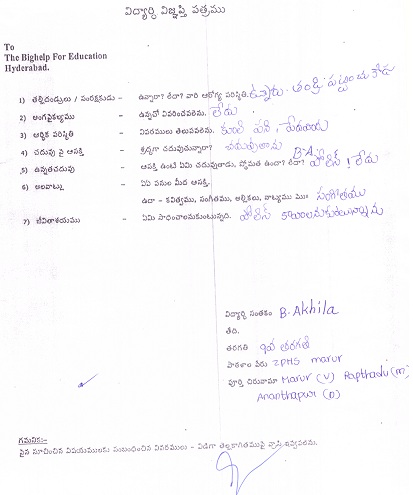 విద్యార్థి విజ్ఞప్తి పత్రము
To
The Bighelp For Education
Hyderabad.
1) తల్లిదండ్రులు / సంరక్షకుడు - ఉన్నారా? లేదా? వారి ఆరోగ్య పరిస్థితి. ఉన్నారు. తండ్రి పట్టించుకోడు
2) అంగవైకల్యము - ఉన్నచో వివరించవలెను. లేదు
3) ఆర్థిక పరిస్థితి - వివరములు తెలుపవలెను. కూలి పని, పేదవారు
4) చదువు పై ఆసక్తి - శ్రద్ధగా చదువుచున్నారా? చదువుతాను
5) ఉన్నతచదువు - ఆసక్తి ఉంటే ఏమి చదువుతాడు, స్తోమత ఉందా? లేదా? B.A పోలీస్ ! లేదు
6) అలవాట్లు - ఏఏ పనుల మీద ఆసక్తి.
ఉదా - కవిత్వము, సంగీతము, అల్లికలు, నాట్యము మొ సంగీతము
7) జీవితాశయము - ఏమి సాధించాలనుకుంటున్నది. పోలీస్ కావాలనుకుంటున్నాను
విద్యార్థి సంతకం B-Akhila
తేది.
తరగతి 9వ తరగతి
పాఠశాల పేరు ZPHS marur
పూర్తి చిరునామా Marur (V) Rapthadu (m)
Ananthapur (D)
గమనిక:-
పైన సూచించిన విషయములకు సంబంధించిన వివరములు - విడిగా తెల్లకాగితముపై వ్రాసి ఇవ్వవలెను.